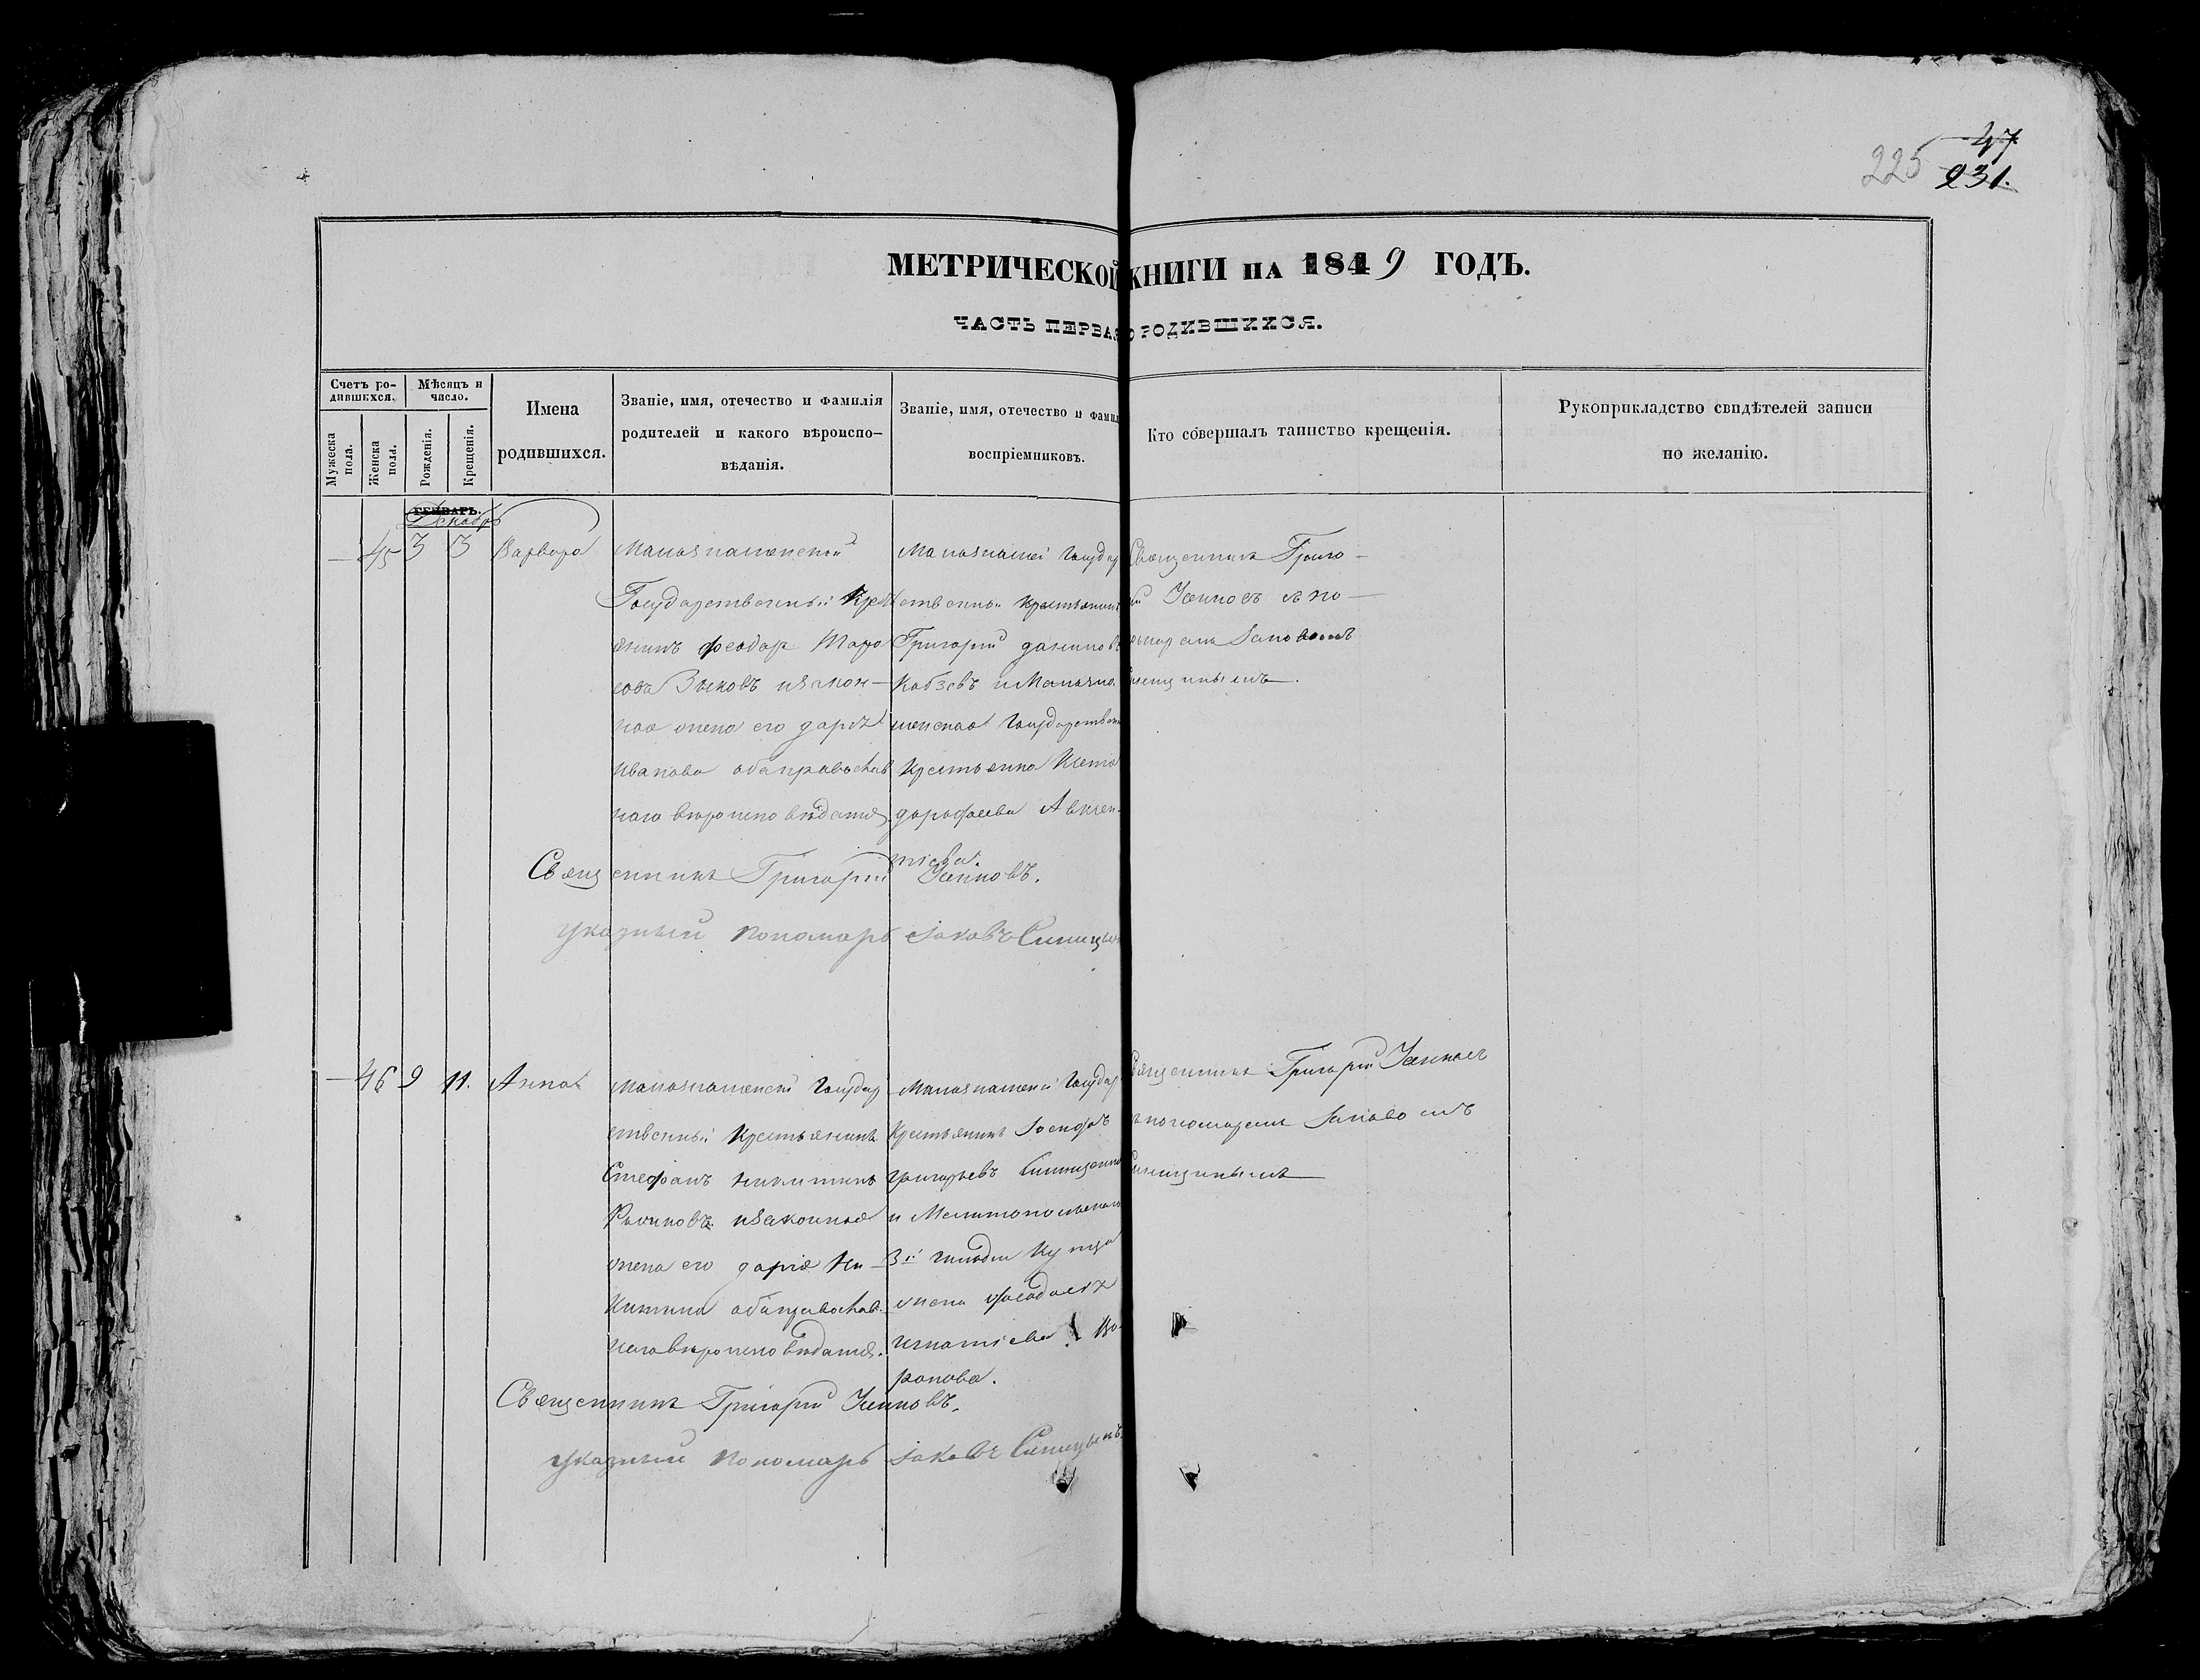 47
225 231.
МЕТРИЧЕСКОЙ КНИГИ НА 1849 ГОДЪ.
ЧАСТЬ ПЕРВАЯ О РОДИВШИХСЯ.
Счетъ ро-
дившихся.
Мужеска
пола.
Женска
пола.
Мѣсяцъ и
число.
Рожденія.
Крещенія.
Имена
родившихся.
Званіе, имя, отечество и фамилія
родителей и какого вѣроиспо-
вѣданія.
Званіе, имя, отечество и фамил
воспріемниковъ.
Кто совершалъ таинство крещенія.
Рукоприкладство свидѣтелей записи
по желанію.
ГЕНВАРЬ.
Декабрь
— 45 3 3 Варвара
Малознаменскій
Государственный Крестъ
янинъ Феодоръ
совъ Зыковъ изакон-
ная жена его дарія
Иванова обаправослав
наго вѣроисповѣданія.
Малознамеі Государ
ственный Крестьянинъ
Григорій данилов
Кобзевъ и Малозна
менская Государствен
Крестьянка Ксенія
дорофеева Авксен-
тіева.
Священникъ Григо-
рій Усиновъ съ по-
номаремъ Іаковомъ
Синицинымъ.
Священникъ Григорій Усиновъ.
указный пономарь Іаковъ Синицын
— 46 9 11. Анна
Малознаменскі Государ
ственный Крестьянинъ
Стефанъ Никитинъ
изаконная
жена его дарія Ни-
китина обаправослав-
наго вѣроисповѣданія.
Малознаменсі Государ
Крестьянинъ Іосифъ
григорьевъ
и Мелитопольскаго
3й гильдіи Купца
жена феодосія
игнатіева Во-
ронова.
Священникъ Григорій Усиновъ
съ пономаремъ Іаковомъ
Синицинымъ
Священникъ Григорій Усиновъ.
указный пономарь Іаковъ Синицынъ.